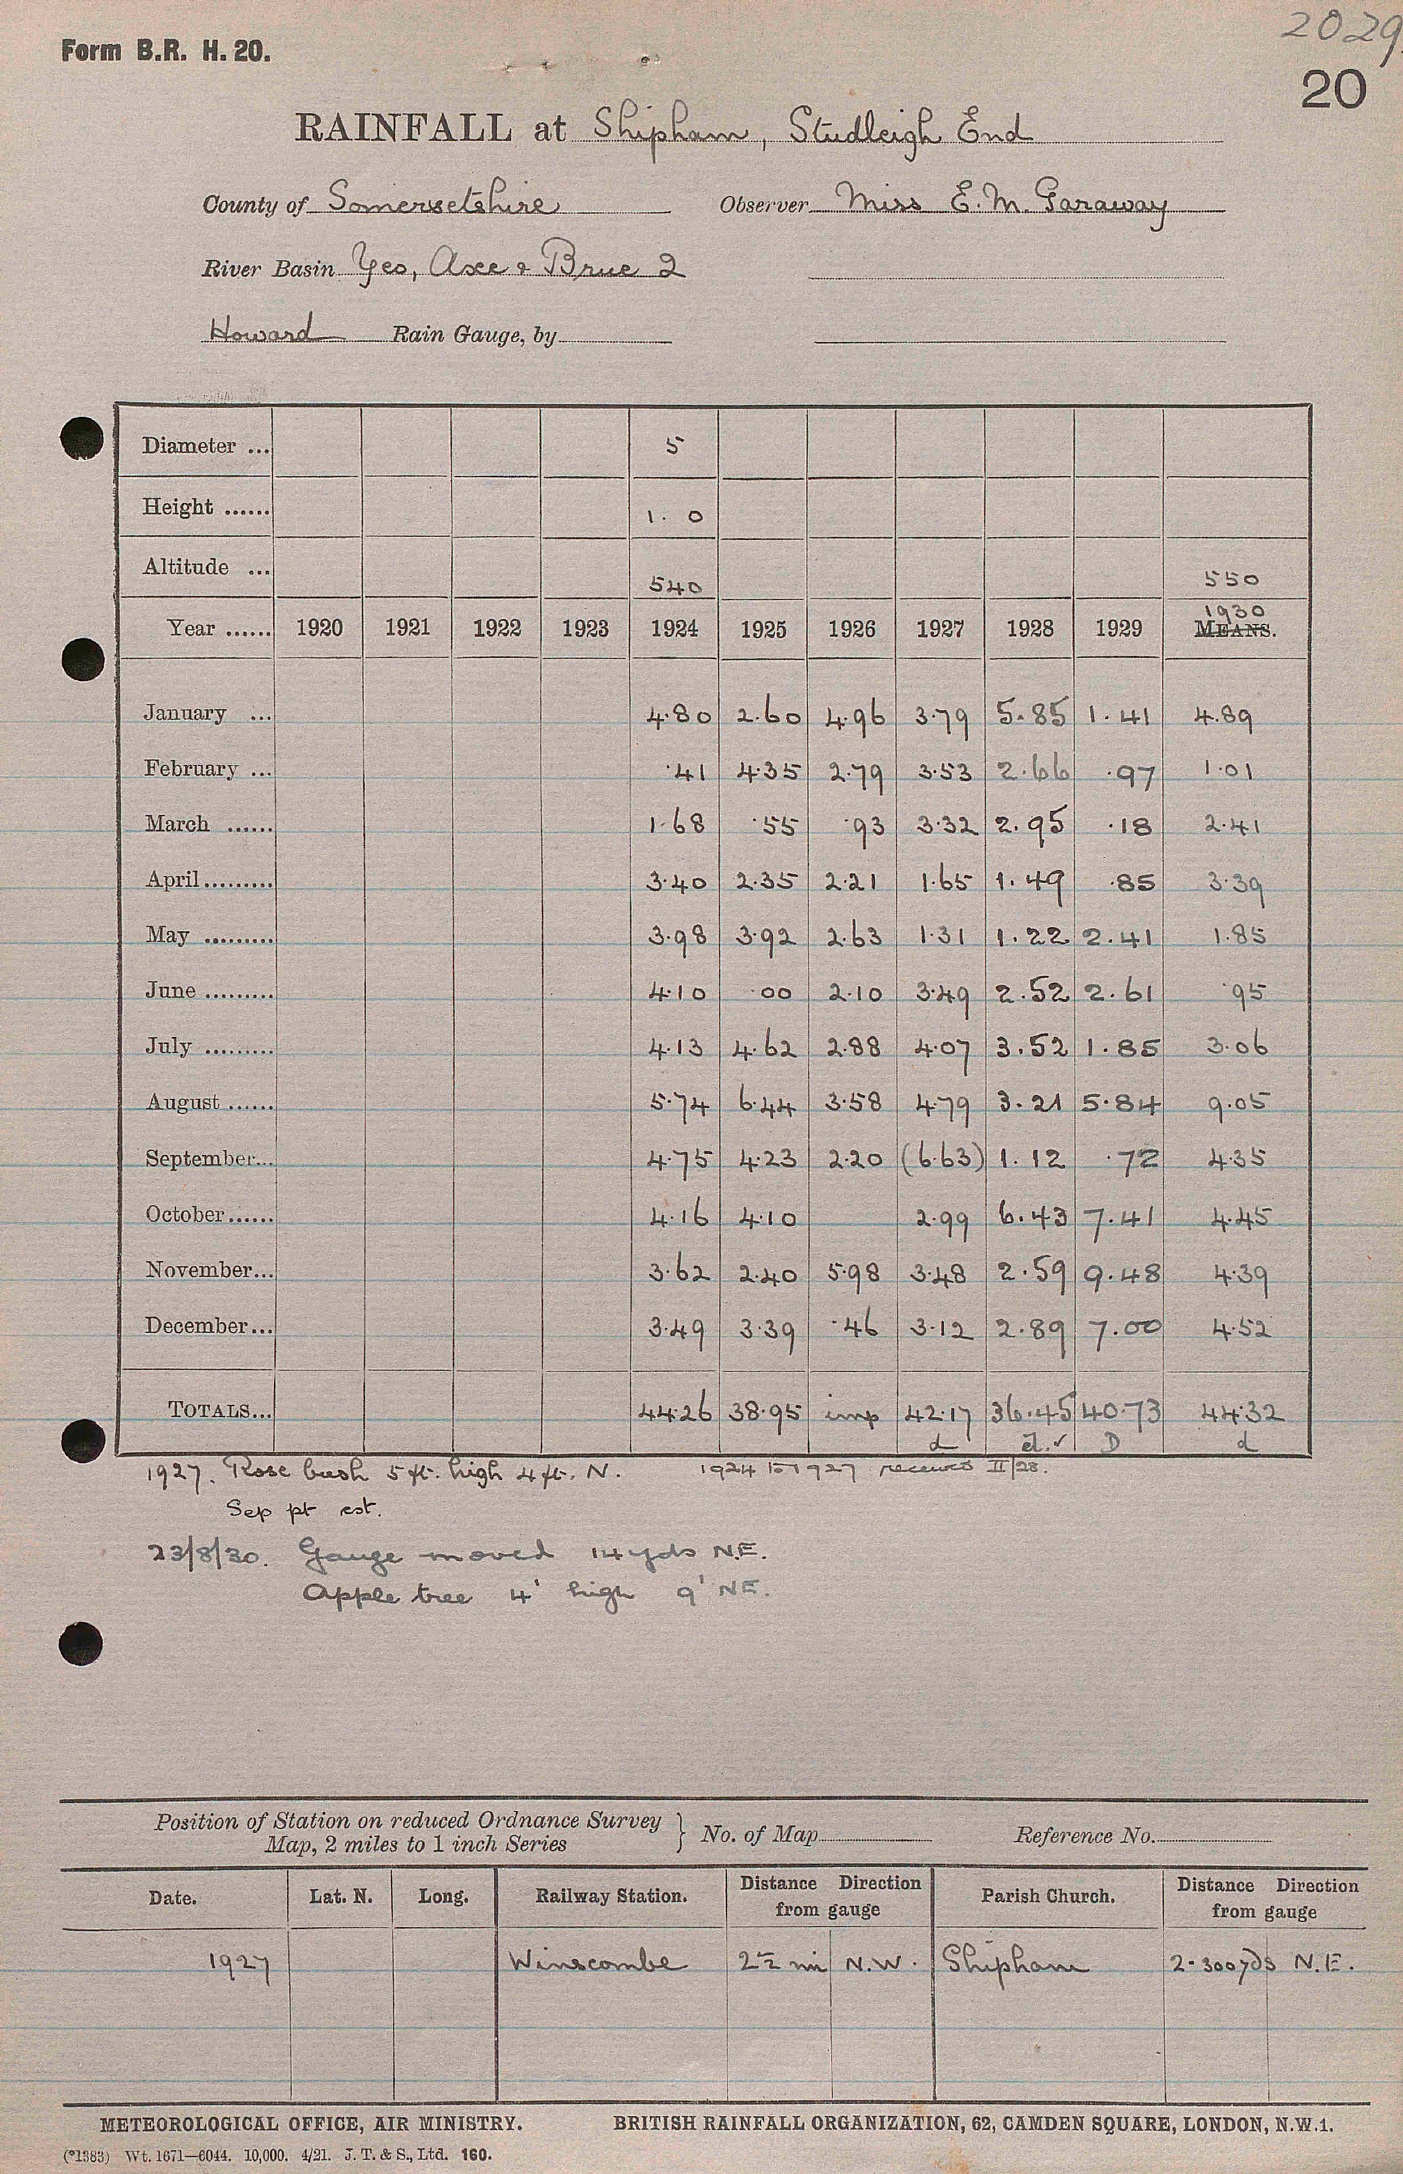 2029
Form B.R. H. 20.
20
RAINFALL at Shipham, Studleigh End
County of Somersetshire Observer Miss E. M. Garaway
River Basin Yeo, Axe & Brue 2
Howard Rain Gauge, by
Diameter ... 5
Height ...... 1. 0
Altitude ... 540 550
1930
Year ...... 1920 1921 1922 1923 1924 1925 1926 1927 1928 1929 MEANS.
January ... 4.80 2.60 4.96 3.79 5.85 1.41 4.89
February ... .41 4.35 2.79 3.53 2.66 .97 1.01
March ...... 1.68 .55 .93 3.32 2.95 .18 2.41
April ......... 3.40 2.35 2.21 1.65 1.49 .85 3.39
May ......... 3.98 3.92 2.63 1.31 1.22 2.41 1.85
June ......... 4.10 .00 2.10 3.49 2.52 2.61 .95
July ......... 4.13 4.62 2.88 4.07 3.52 1.85 3.06
August ...... 5.74 6.44 3.58 4.79 3.21 5.84 9.05
September... 4.75 4.23 2.20 (6.63) 1.12 .72 4.35
October ...... 4.16 4.10 2.99 6.43 7.41 4.45
November... 3.62 2.40 5.98 3.48 2.59 9.48 4.39
December... 3.49 3.39 .46 3.12 2.89 7.00 4.52
TOTALS... 44.26 38.95 imp 42.17 36.45 40.73 44.32
d d.✓ D d
1927. Rose bush 5 ft. high 4 ft. N. 1924 to 1927 received II/28.
Sep pt est.
23/8/30. Gauge moved 14 yds N.E.
Apple tree 4' high 9' NE.
Position of Station on reduced Ordnance Survey
Map, 2 miles to 1 inch Series } No. of Map Reference No.
Date. Lat. N. Long. Railway Station. Distance Direction from gauge Parish Church. Distance Direction from gauge
1927 Winscombe 2½ mi N.W. Shipham 2-300 yds N.E.
METEOROLOGICAL OFFICE, AIR MINISTRY. BRITISH RAINFALL ORGANIZATION, 62, CAMDEN SQUARE, LONDON, N.W.1.
(*1383) Wt. 1671—6044. 10,000. 4/21. J. T. & S., Ltd. 160.